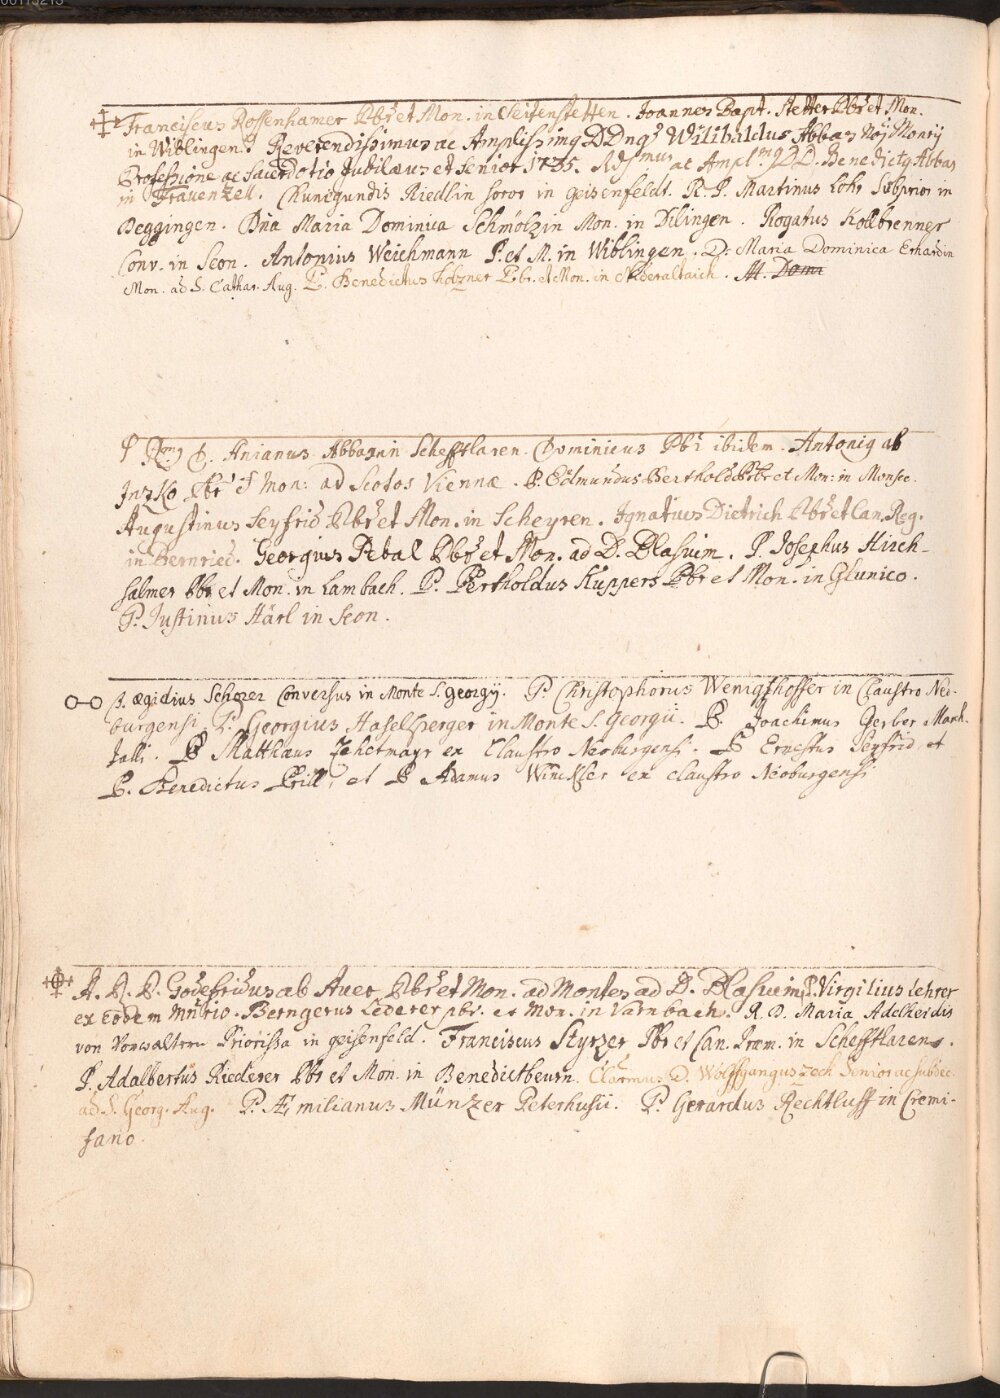 Franciscus Rossenhamer Pbr et Mon. in Seitenstetten. Joannes Bapt. Stetter Pbr et Mon.
in Wiblingen. Reverendissimus ac Amplissimg DDng Wilibaldus Abbas Monrij
Professione ac Sacerdotio Jubilæus et Senior 1735. Rdsmus ac Ampl.mg DD. Benedictg Abbas
in Frauenzell. Chunegundis Riedlin soror in geisenfeldt. R. P. Martinus Lohr Subprior in
Deggingen. Dna Maria Dominica Schmölzin Mon. in Dilingen. Rogatus Kollbrenner
Conv. in Seon. Antonius Weichmann P. et M. in Wiblingen. D. Maria Dominica Erhardin
Mon. ad S. Cathar. Aug. P. Benedictus Holzner Pbr. et Mon. in Nideraltaich. M. Domi
D. Anianus Abbas in Schefftlaren. Dominicus Pbr ibidem. Antonig ab
Inzko Pbr et Mon: ad Scotos Viennæ. P. Edmundus Berthold Pbr et Mon: in Monsee.
Augustinus Seyfrid Pbr et Mon. in Scheyren. Ignatius Dietrich Pbr et Can. Reg.
in Bernried. Georgius Pebal Pbr et Mon. ad D. Blasium. P. Josephus Hirch-
halmer Pbr et Mon. in Lambach. P. Pertholdus Küppers Pbr et Mon. in Glunico.
P. Justinus Härl in Seon.
P. Ægidius Scherer Conversus in Monte S. Georgij. P. Christophorus Wenigthoffer in Claustro Neo-
burgensi P. Georgius Haselsperger in Monte S. Georgii. P. Joachimus Gerber Mon.
Galli. P Matthæus Zehetmayr ex Claustro Neoburgensi. P Ernestus Seyfrid et
P. Benedictus Prill, et P Adamus Winckler ex claustro Neoburgensi
A. R. P. Godefridus ab Aver Pbr et Mon. ad Montes ad D. Blasium. P. Virgilius Lehrer
ex eodem Mnrio. Berngerus Lederer pbr. et Mon. in Varnbach. R. D. Maria Adelheidis
von Vorwaltern Priorissa in geisenfeld. Franciscus Styrzer Pbr et Can. Præm. in Schefftlaren.
P. Adalbertus Riederer Pbr et Mon. in Benedictbeurn. Clarmus D. Wolffgangus Zech Senior ac Subdec.
ad S. Georg. Aug. P. Æmilianus Münzer Peterhusii. P. Gerardus Rechtluff in Cremi-
fano.